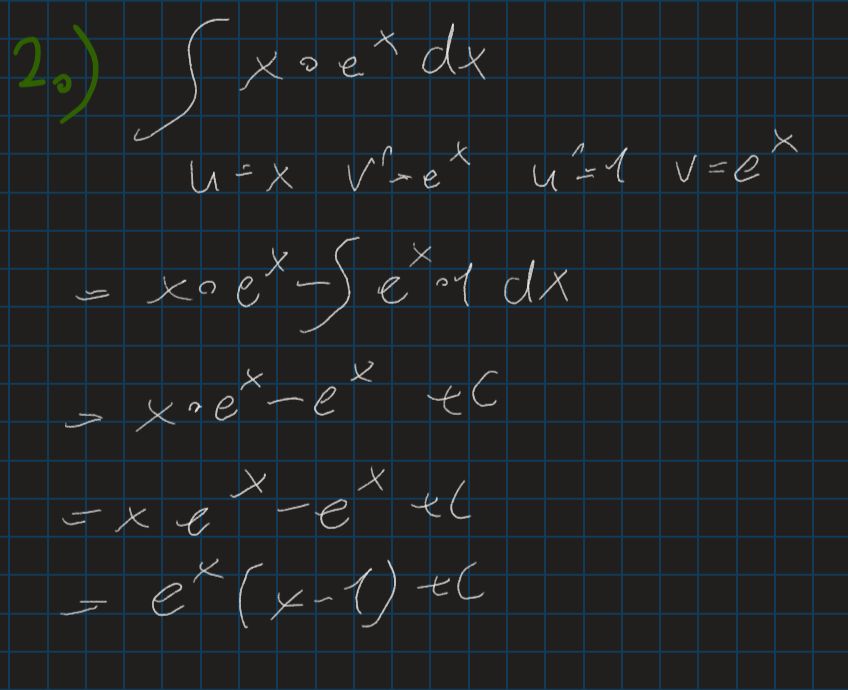 2.) ∫ x · e^x dx
u = x v' = e^x u' = 1 v = e^x
= x · e^x - ∫ e^x · 1 dx
= x · e^x - e^x + C
= x e^x - e^x + C
= e^x (x - 1) + C